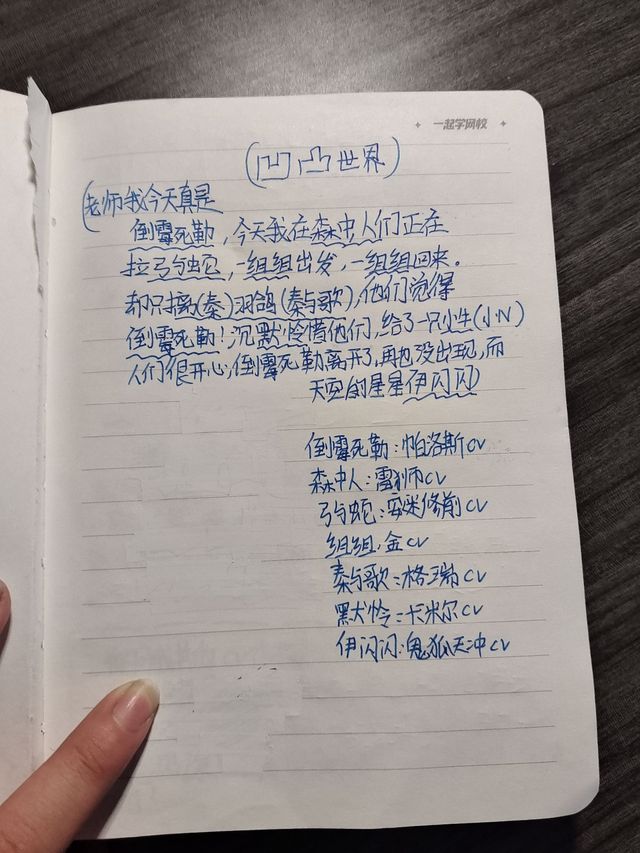 一起学网校
(凹凸世界)
(老师我今天真是
倒霉死勒,今天我在森中人们正在
拉弓与蛇,一组组出发,一组组回来。
却只摛(秦)羽鸽(秦与歌),他们觉得
倒霉死勒!沉默怜惜他们,给了一只小生(小N)
人们很开心,倒霉死勒离开了,再也没出现,而
天空的星星伊闪闪)
倒霉死勒:帕洛斯cv
森中人:雷狮cv
弓与蛇:安迷修前cv
组组:金cv
秦与歌:格瑞cv
默怜:卡米尔cv
伊闪闪:鬼狐天冲cv